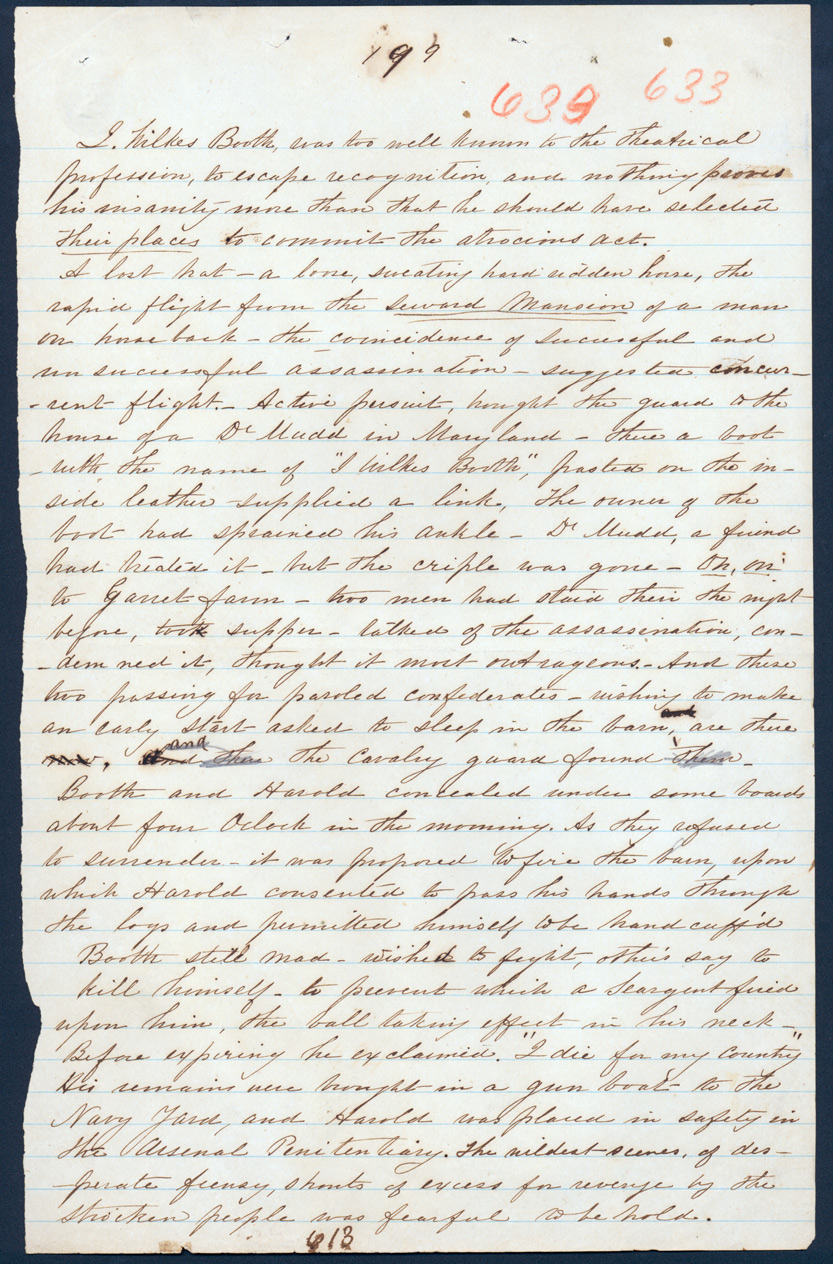 199
639 633
J. Wilkes Booth, was too well known to the theatrical
profession, to escape recognition, and nothing proves
his insanity more than that he should have selected
their places to commit the atrocious act.
A lost hat - a loose, sweating hard ridden horse, the
rapid flight from the Seward Mansion of a man
on horse back - the coincidence of successful and
unsuccessful assassination - suggested concur-
-rent flight. - Active persuit, brought the guard to the
house of a Dr Mudd in Maryland - there a boot
-with the name of "J Wilkes Booth", pasted on the in-
side leather supplied a link, The owner of the
boot had sprained his ankle - Dr Mudd, a friend
had treated it - but the criple was gone - On, on
to Garret farm - two men had staid their the night
before, took supper - talked of the assassination, con-
-demned it, thought it most outrageous. - And these
two passing for paroled confederates - wishing to make
an early start asked to sleep in the barn, and are there
now, and and there the Cavalry guard found them -
Booth and Harold concealed under some boards
about four Oclock in the morning. As they refused
to surrender - it was proposed to fire the barn, upon
which Harold consented to pass his hands through
the logs and permitted himself to be hand cuff'd
Booth still mad - wished to fight, others say to
kill himself - to prevent which a Seargent fired
upon him, the ball taking effect in his neck -
Before expiring he exclaimed. "I die for my Country"
His remains were brought in a gun boat to the
Navy Yard, and Harold was placed in safety in
the Arsenal Penitentiary. The wildest scenes, of des-
-perate frensy, shouts of excess for revenge by the
stricken people was fearful to behold.
613